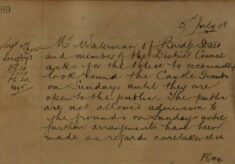 89
5 July 08
Mr Waterman of Bridge Street
and member of the District Council
asks for the Police to occasionally
look round the Castle Grounds
on Sundays until they are
open to the public. The public
are not allowed admission to
the grounds on Sundays until
further arrangements had been
made as regards caretaker etc